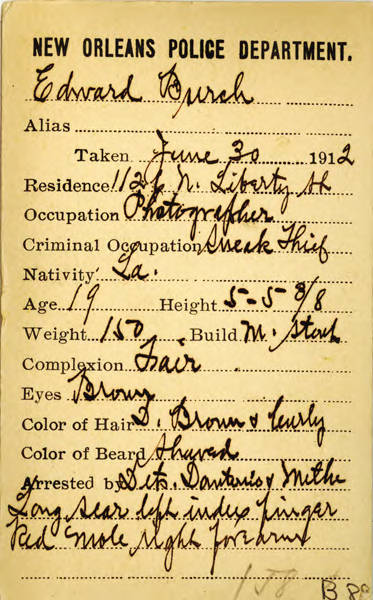 NEW ORLEANS POLICE DEPARTMENT.
Edward Bursh
Alias
Taken June 30 1912
Residence 1126 N. Liberty st
Occupation Photographer
Criminal Occupation Sneak Thief
Nativity La.
Age 19 Height 5-5 8/8
Weight 150 Build M. Stout
Complexion Fair
Eyes Brown
Color of Hair D. Brown & Curly
Color of Beard Shaved
Arrested by Dets. &
Long scar left index finger
Red mole right forearm
158 B 88